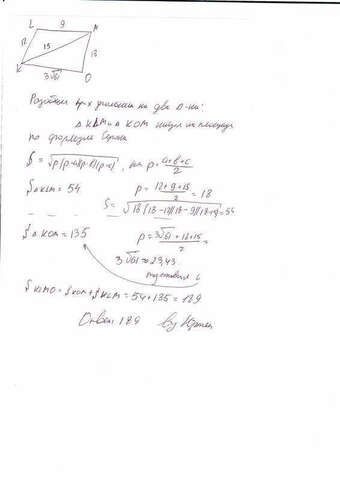 L 9 M
12 15 13
K 3√61 O
Разобьем 4-х угольник на два Δ-ка:
Δ KLM и Δ KOM найдем их площади
по формуле Герона
S = √p(p-a)(p-b)(p-c), где p = a+b+c / 2
S Δ KLM = 54 p = 12+9+15 / 2 = 18
S = √18(18-12)(18-9)(18+9) = 54
S Δ KOM = 135 p = 3√61 + 12 + 15 / 2 =
3√61 ≈ 23,43
подставил с
S KLMO = S KOM + S KLM = 54 + 135 = 189
Ответ: 189 by